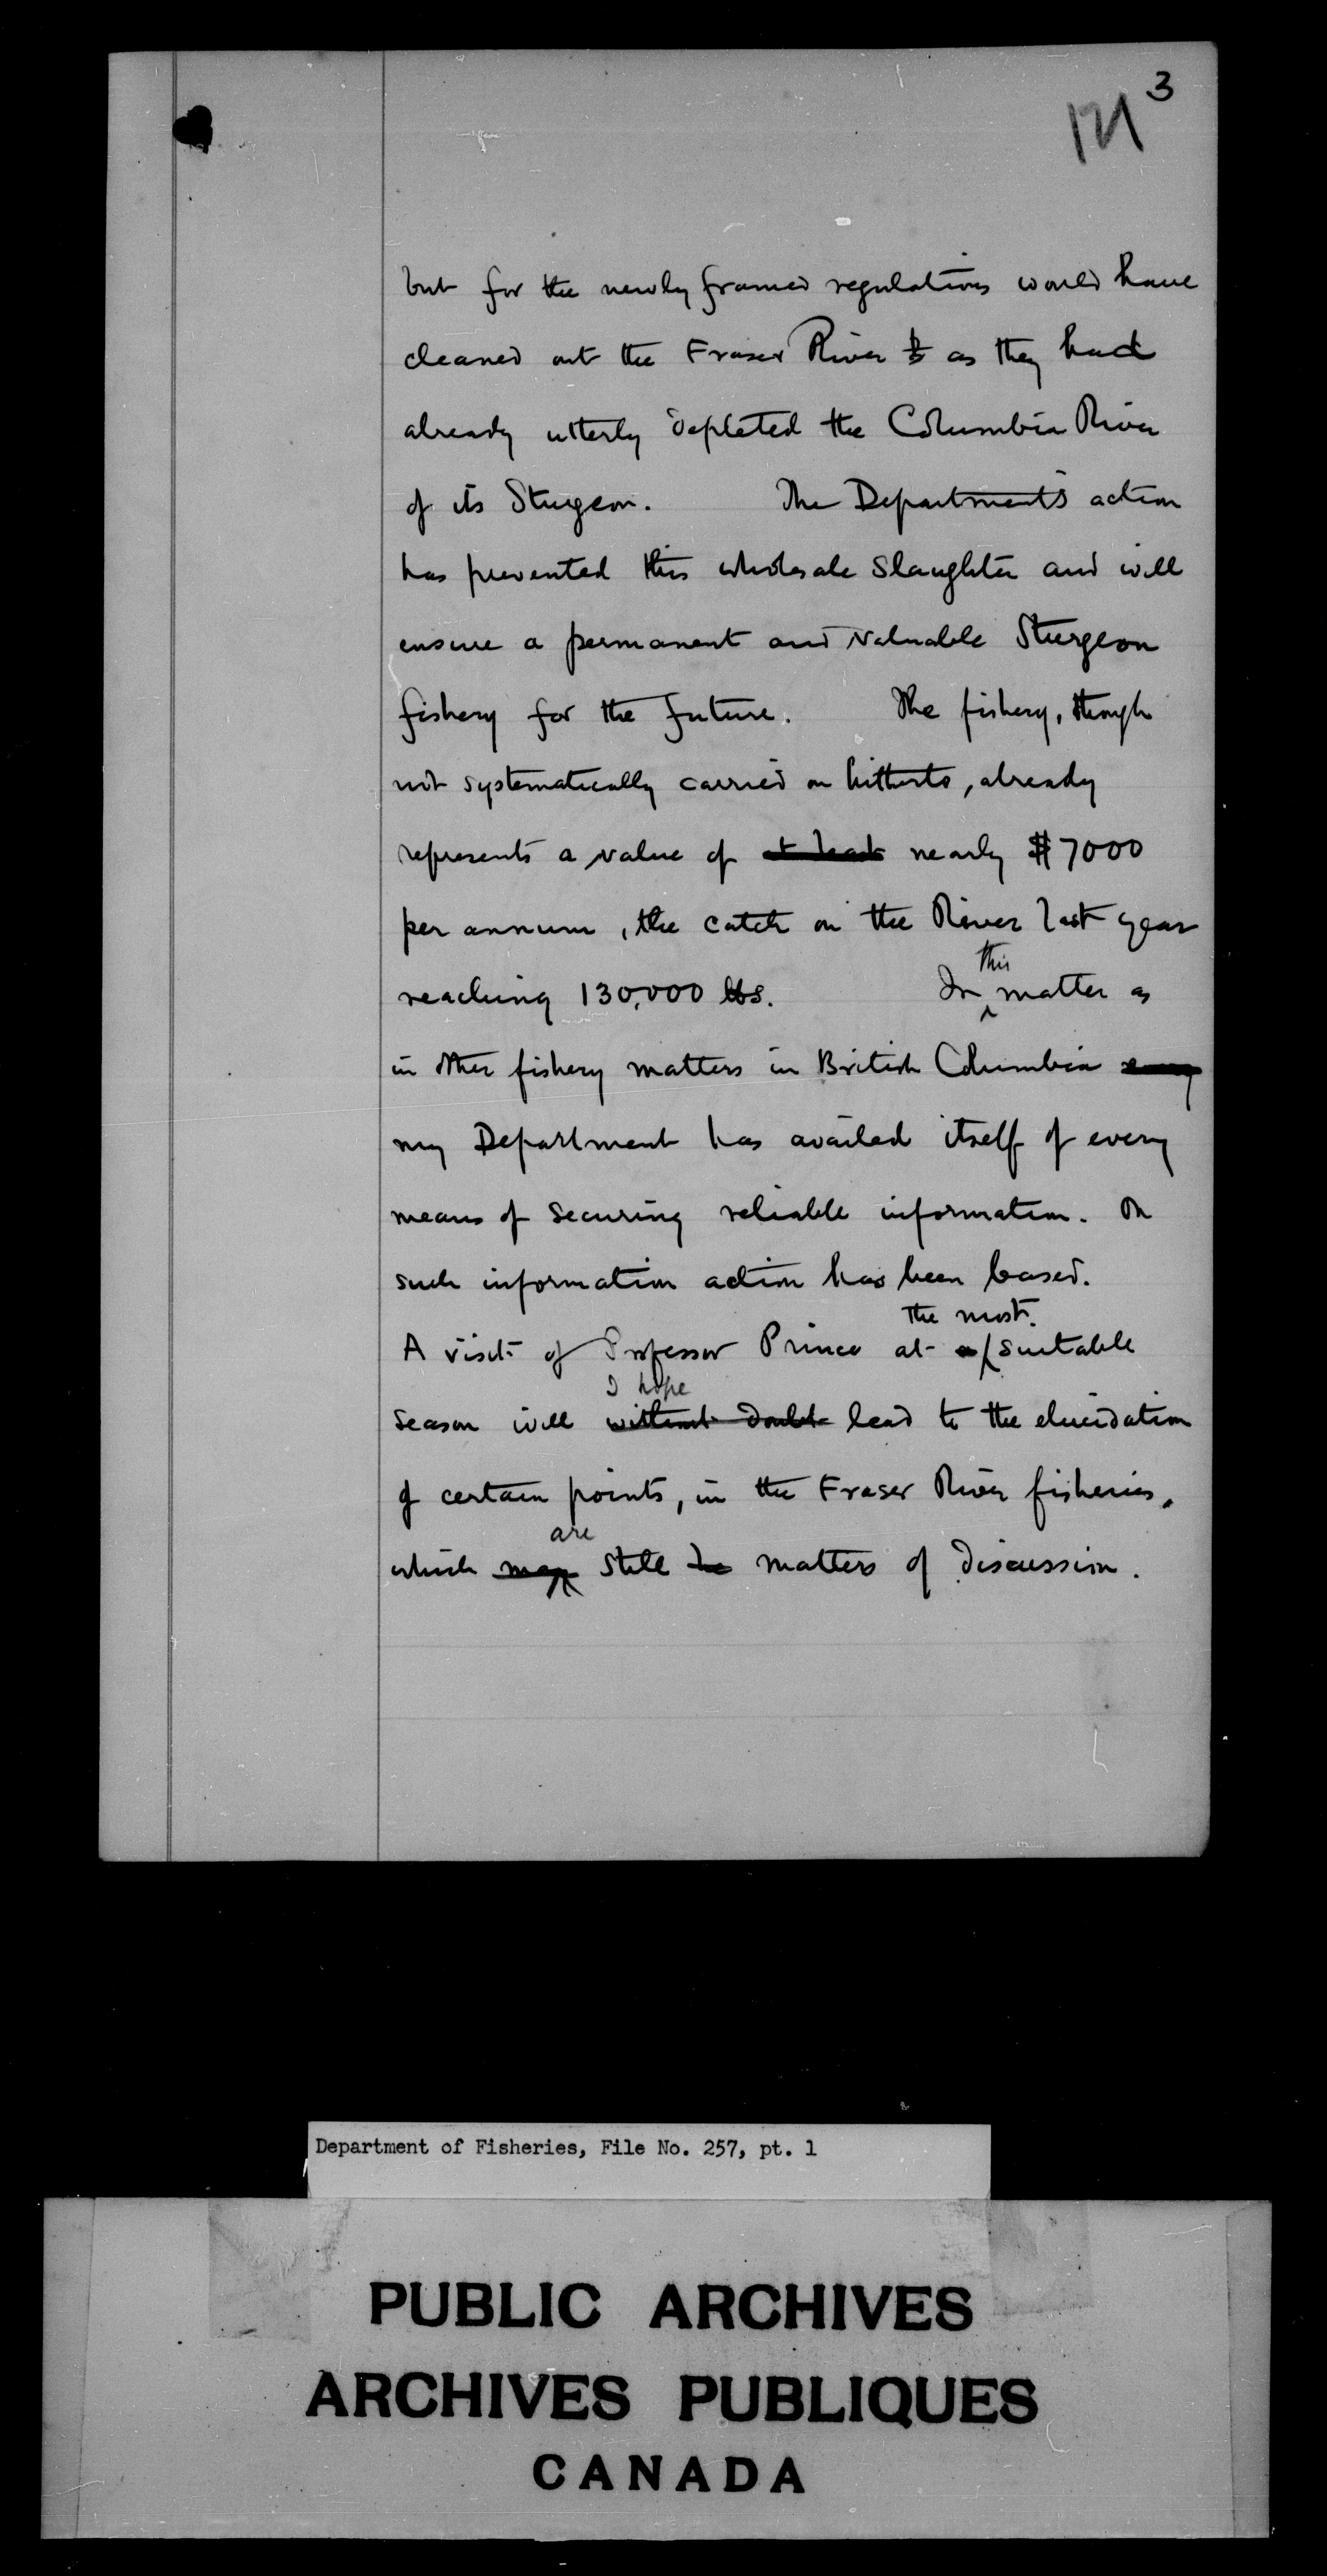 3
171
but for the newly framed regulations would have
cleaned out the Fraser River as they had
already utterly depleted the Columbia River
of its Sturgeon. The Department's action
has prevented this wholesale slaughter and will
ensure a permanent and valuable Sturgeon
fishery for the future. The fishery, though
not systematically carried on hitherto, already
represents a value of at least nearly $7000
per annum, the catch on the River last year
reaching 130,000 lbs. In this matter as
in other fishery matters in British Columbia
my Department has availed itself of every
means of securing reliable information. On
such information action has been based.
the most
A visit of Professor Prince at a suitable
I hope
season will without doubt lead to the elucidation
of certain points, in the Fraser River fisheries,
are
which may still be matters of discussion.
Department of Fisheries, File No. 257, pt. 1
PUBLIC ARCHIVES
ARCHIVES PUBLIQUES
CANADA